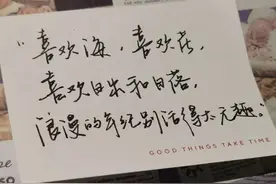 “喜欢海，喜欢花，
喜欢日出和日落，
浪漫的年纪别活得太无趣。”
GOOD THINGS TAKE TIME